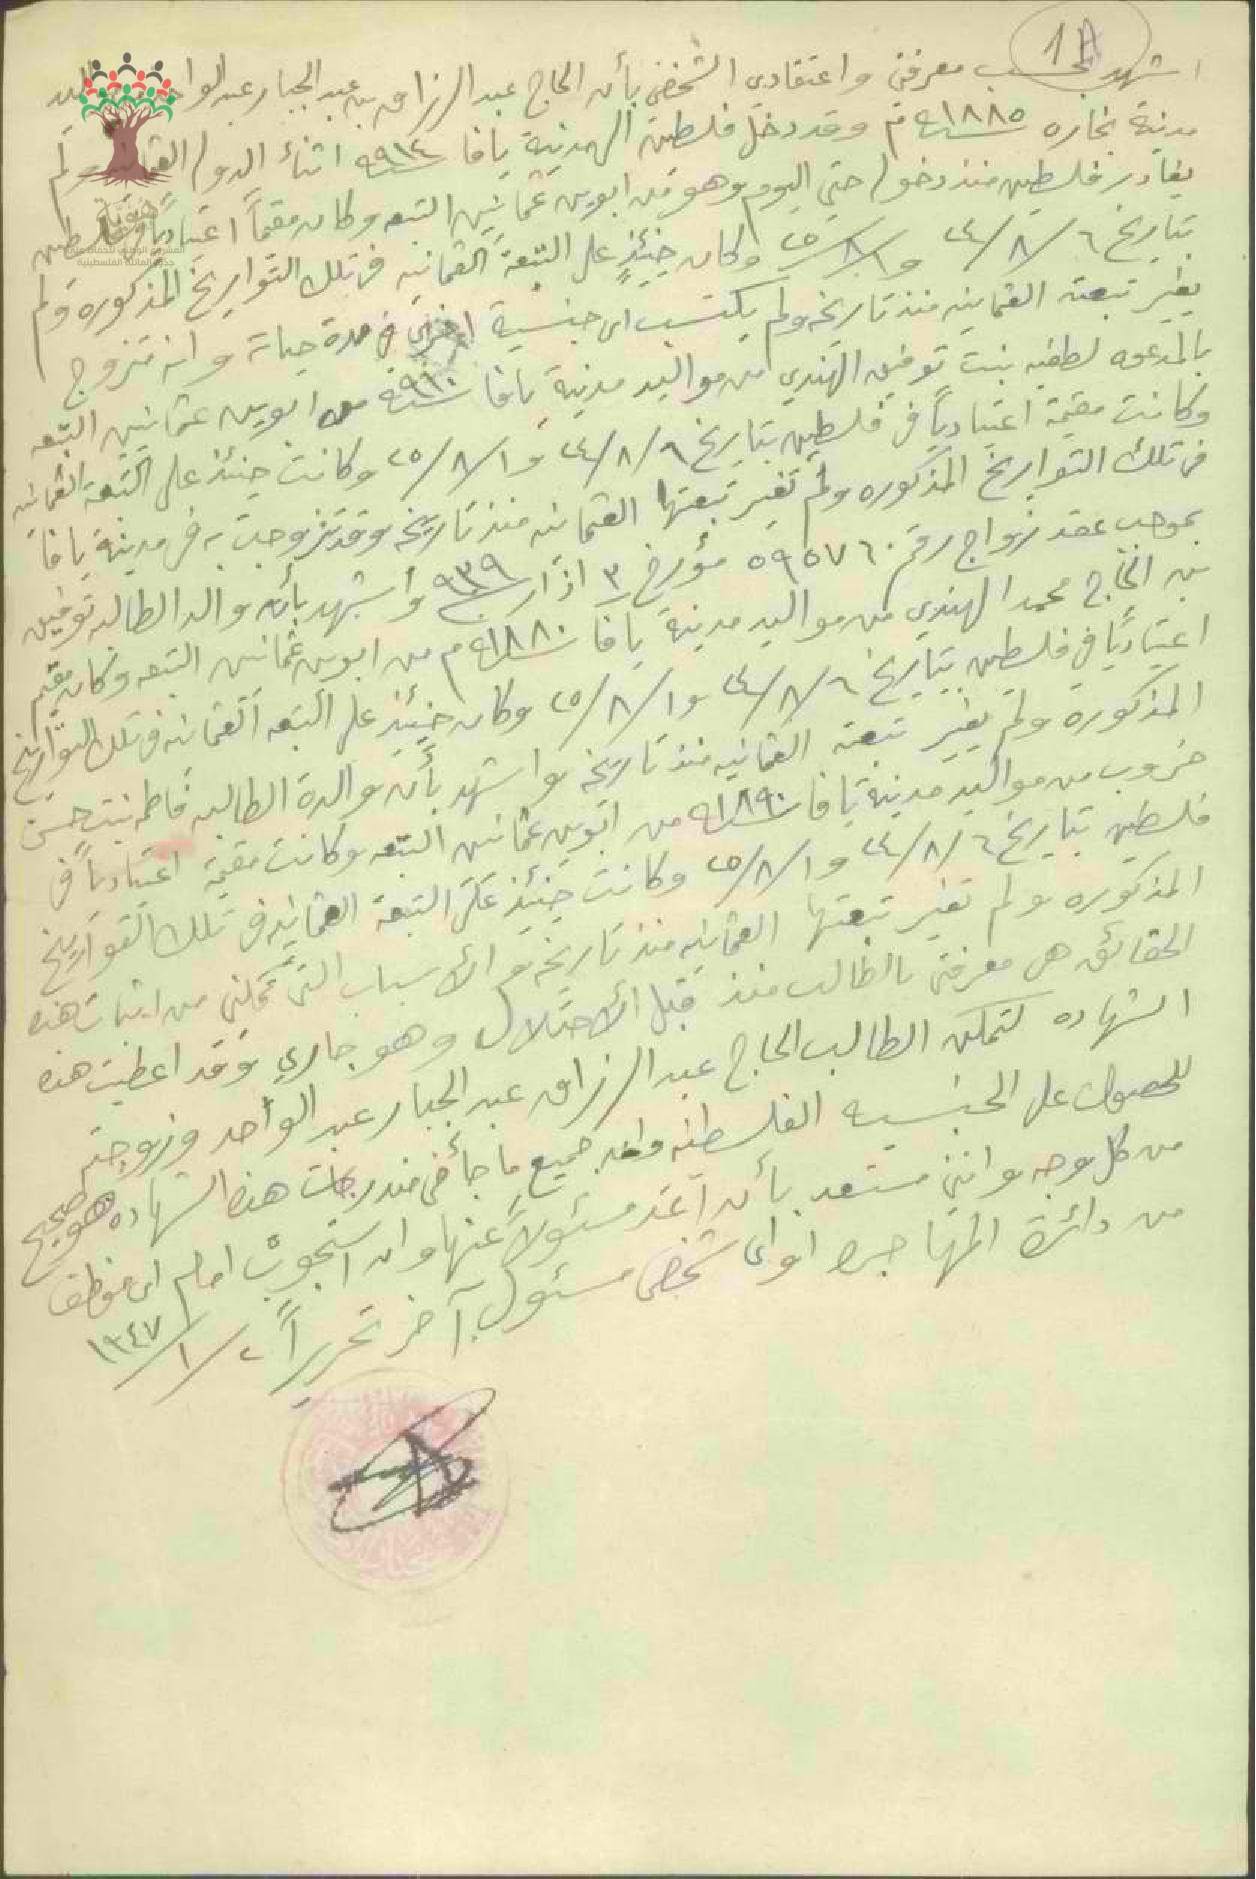 1A
اشهد بحسب معرفتي واعتقادي الشخصي بأن الحاج عبد الرزاق بن عبد الجبار عبد الواحد
مدينة بخاره سنة ١٨٨٥ م وقد دخل فلسطين الى مدينة يافا سنة ٩١٤ اثناء الدوله العثمانيه ولم
يغادر فلسطين منذ دخوله حتى اليوم وهو من ابوين عثمانيين التبعه وكان مقيماً اعتيادياً في فلسطين
بتاريخ ٦/٨/٢٤ و ١/٨/٢٥ وكان حينئذٍ على التبعة العثمانيه في تلك التواريخ المذكوره ولم
يغير تبعته العثمانيه منذ تاريخه ولم يكتسب اى جنسية اخرى في مدة حياته وانه متزوج
بالمدعوه لطفيه بنت توفيق الهندي من مواليد مدينة يافا سنة ٩١٠ من ابوين عثمانيين التبعه
وكانت مقيمة اعتيادياً في فلسطين بتاريخ ٦/٨/٢٤ و ١/٨/٢٥ وكانت حينئذ على التبعة العثمانيه
في تلك التواريخ المذكوره ولم تغير تبعتها العثمانيه منذ تاريخه وقد تزوجت به في مدينة يافا
بموجب عقد زواج رقم ٥٩٥٧٦٠ مؤرخ ٣ اذار سنة ٩٣٩ واشهد بأن والد الطالبه توفيق
بن الحاج محمد الهندي من مواليد مدينة يافا سنة ١٨٨٠ م من ابوين عثمانيين التبعه وكان مقيم
اعتيادياً في فلسطين بتاريخ ٦/٨/٢٤ و ١/٨/٢٥ وكان حينئذ على التبعه العثمانيه في تلك التواريخ
المذكورة ولم يغير تبعته العثمانيه منذ تاريخه واشهد بأن والدة الطالبه فاطمه بنت حسن
خروب من مواليد مدينة يافا سنة ١٨٩٠ من ابوين عثمانيين التبعه وكانت مقيمة اعتيادياً في
فلسطين بتاريخ ٦/٨/٢٤ و ١/٨/٢٥ وكانت حينئذ على التبعة العثمانيه في تلك التواريخ
المذكوره ولم تغير تبعتها العثمانيه منذ تاريخه والأسباب التي تمكنني من اثبات هذه
الحقائق هي معرفتي بالطالب منذ قبل الأحتلال وهو جاري وقد اعطيت هذه
الشهاده لتمكن الطالب الحاج عبد الرزاق عبد الجبار عبد الواحد وزوجته
للحصول على الجنسيه الفلسطينيه جميع ما جاء في مندرجات هذه الشهاده هو صحيح
من كل وجه وانني مستعد بأن اعد مسئولاً عنها وان استجوب امام اى موظف
من دائرة المهاجره او اى شخص مسئول آخر تحريراً ٢/١/١٩٤٧
هويتنا
المشروع الوطني للحفاظ على
جذور العائلة الفلسطينية